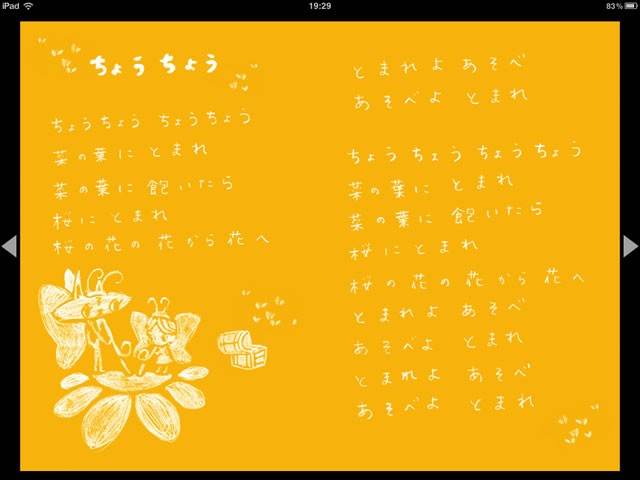 iPad 19:29 83%
ちょう ちょう
ちょうちょう ちょうちょう
菜の葉に とまれ
菜の葉に 飽いたら
桜に とまれ
桜の花の 花から花へ
とまれよ あそべ
あそべよ とまれ
ちょうちょう ちょうちょう
菜の葉に とまれ
菜の葉に 飽いたら
桜に とまれ
桜の花の 花から花へ
とまれよ あそべ
あそべよ とまれ
とまれよ あそべ
あそべよ とまれ